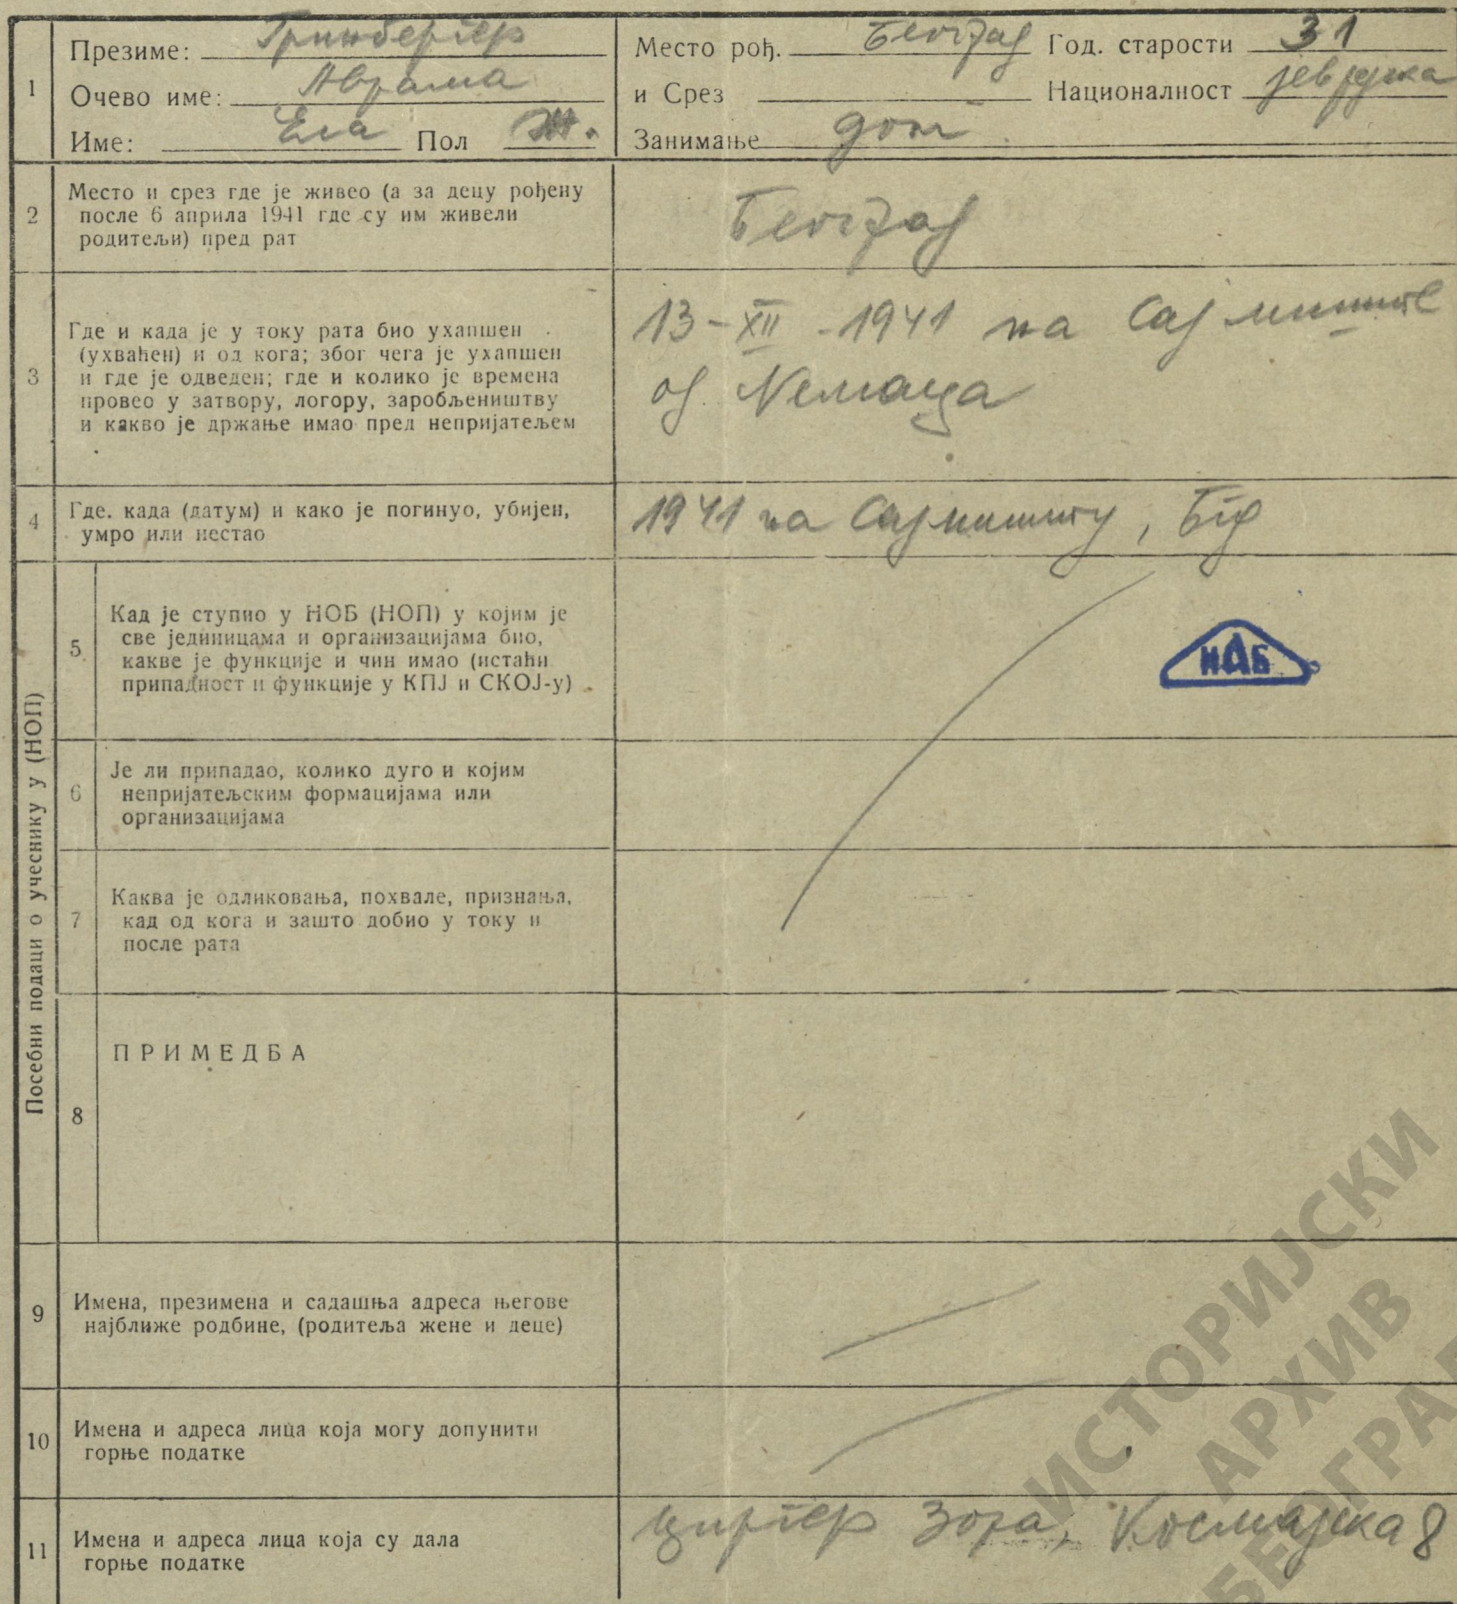 1
Презиме: Гринбергер
Очево име: Аврама
Име: Ела Пол Ж.
Место рођ. Београд Год. старости 31
и Срез Националност јеврејка
Занимање дом
2
Место и срез где је живео (а за децу рођену
после 6 априла 1941 где су им живели
родитељи) пред рат
Београд
3
Где и када је у току рата био ухапшен
(ухваћен) и од кога; због чега је ухапшен
и где је одведен; где и колико је времена
провео у затвору, логору, заробљеништву
и какво је држање имао пред непријатељем
13-XII-1941 на Сајмиште
од Немаца
4
Где. када (датум) и како је погинуо, убијен,
умро или нестао
1941 на Сајмишту, Бгд
Посебни подаци о учеснику у (НОП)
5
Кад је ступио у НОБ (НОП) у којим је
све јединицама и организацијама био,
какве је функције и чин имао (истаћи
припадност и функције у КПЈ и СКОЈ-у)
ИАБ
6
Је ли припадао, колико дуго и којим
непријатељским формацијама или
организацијама
7
Каква је одликовања, похвале, признања,
кад од кога и зашто добио у току и
после рата
8
ПРИМЕДБА
9
Имена, презимена и садашња адреса његове
најближе родбине, (родитеља жене и деце)
10
Имена и адреса лица која могу допунити
горње податке
11
Имена и адреса лица која су дала
горње податке
Зора, Космајска 8
ИСТОРИЈСКИ
АРХИВ
БЕОГРА